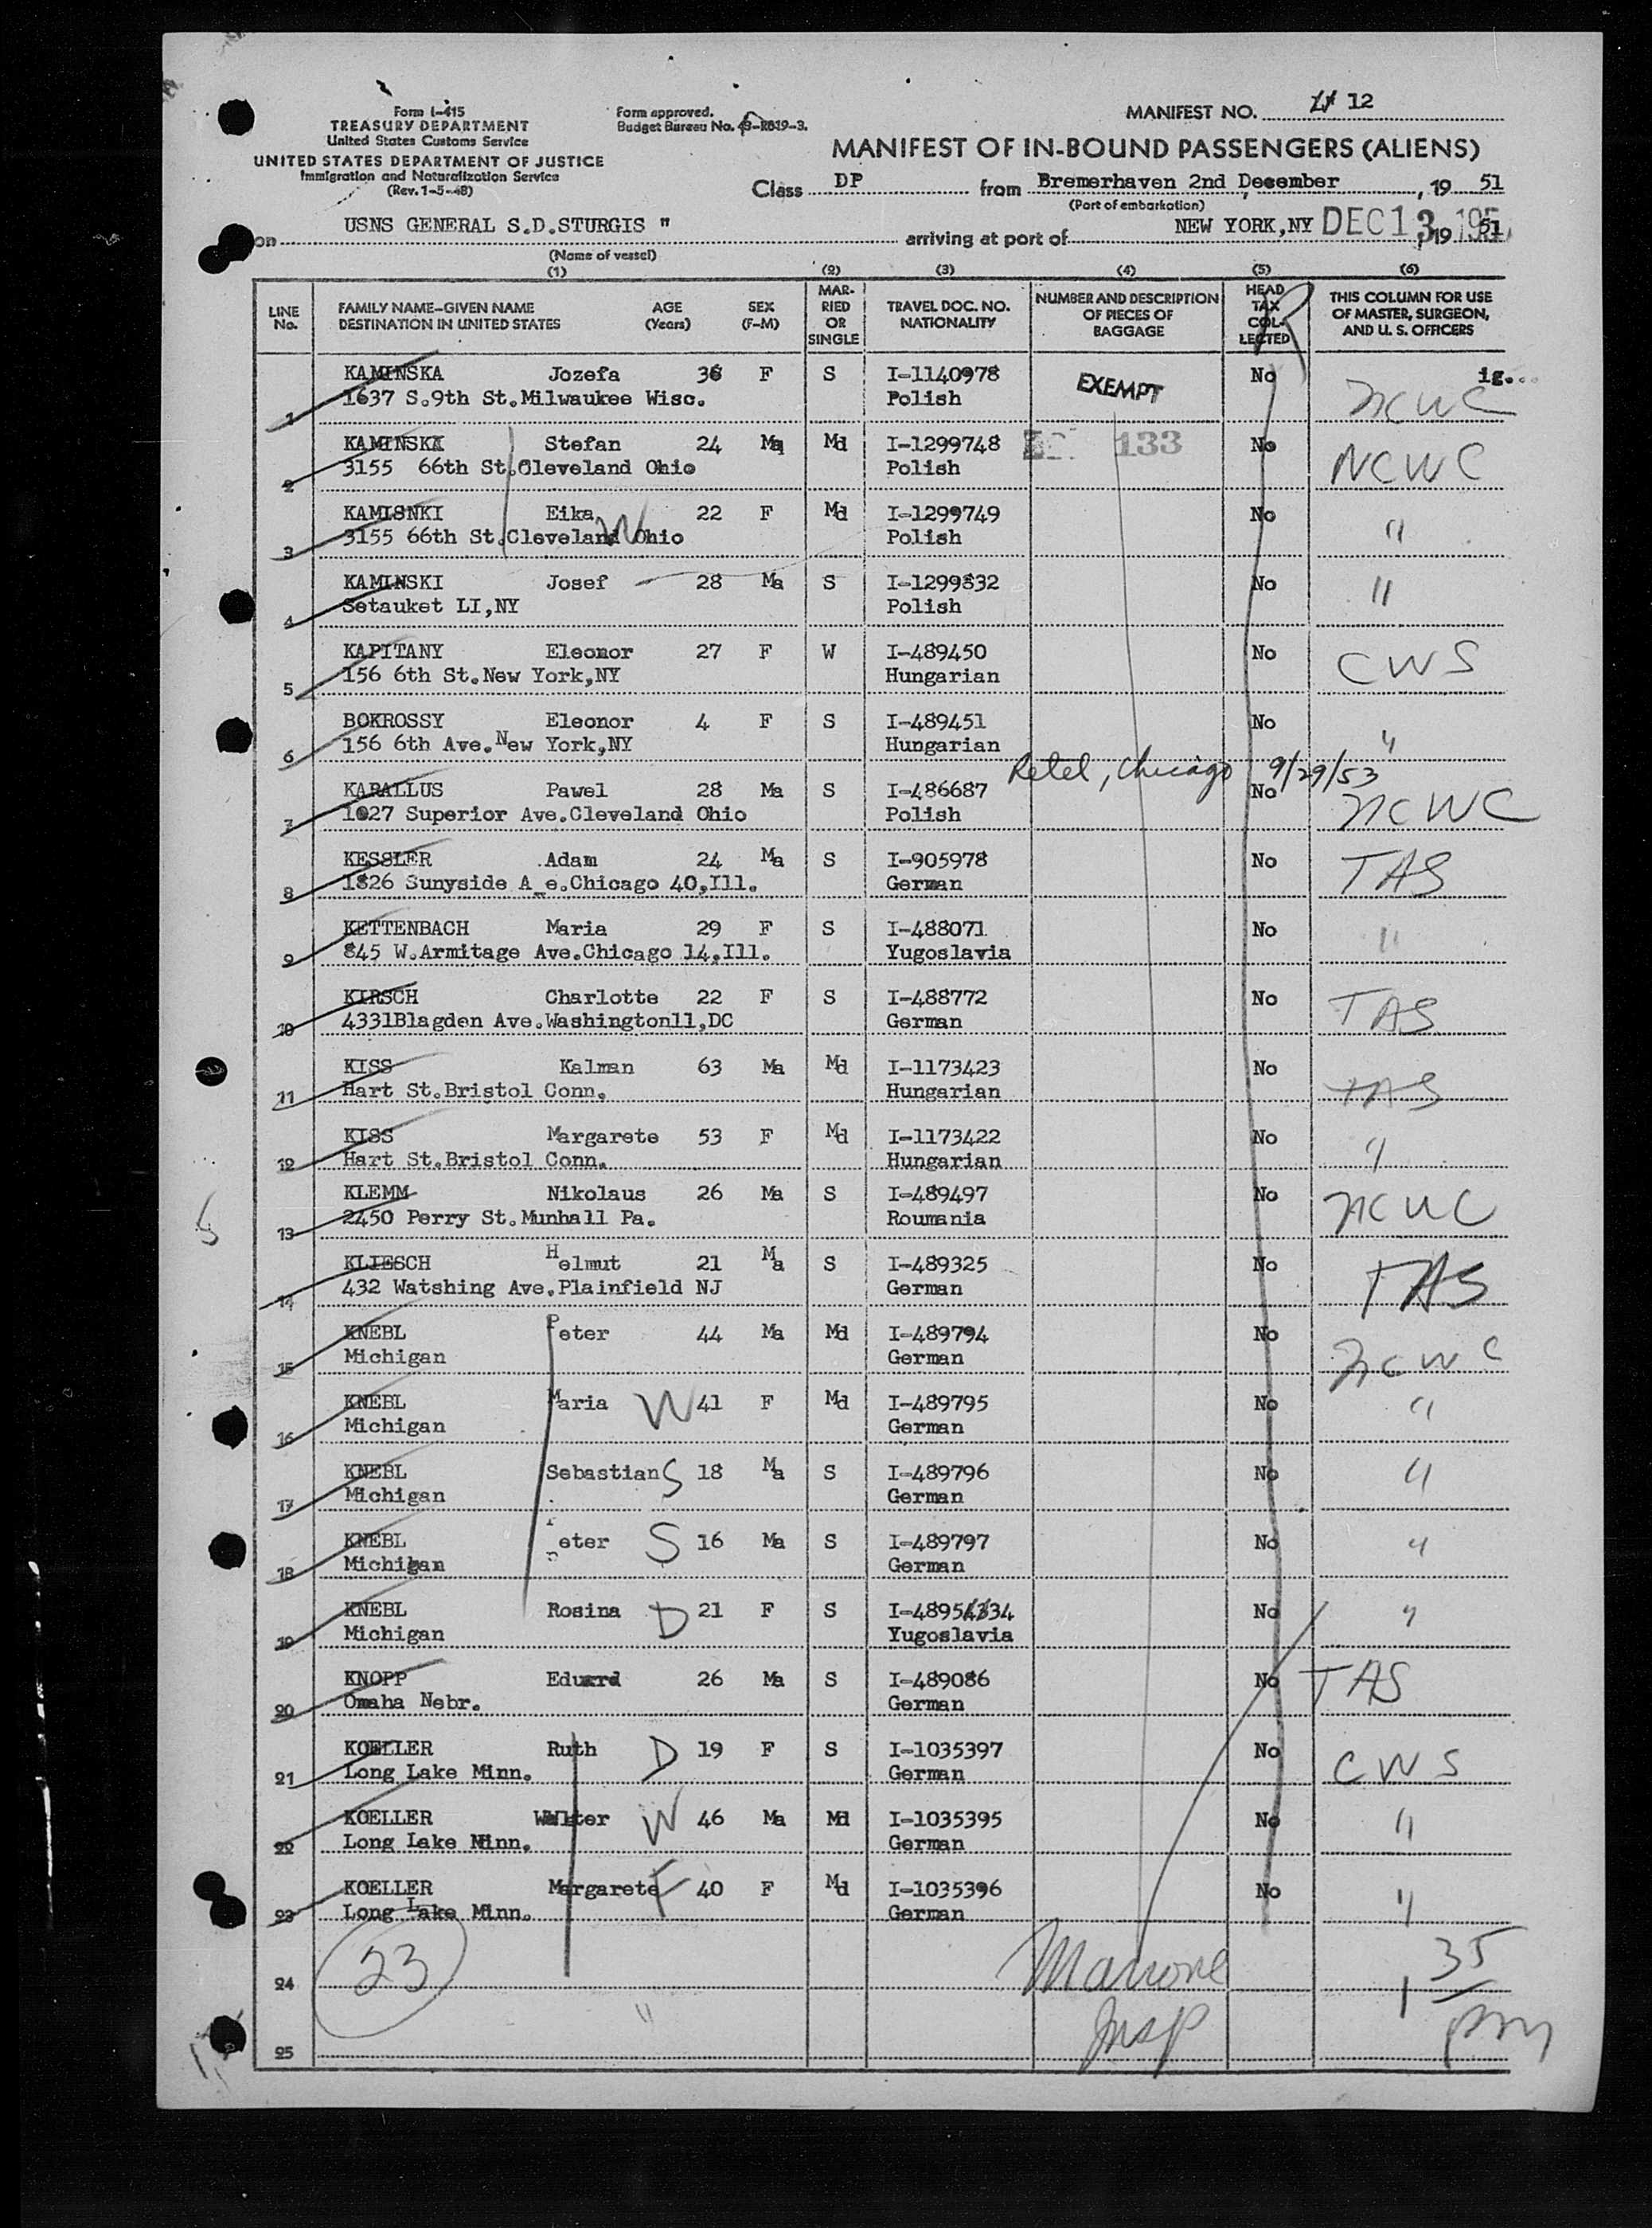 MANIFEST NO. 12
Form I-415
TREASURY DEPARTMENT
United States Customs Service
UNITED STATES DEPARTMENT OF JUSTICE
Immigration and Naturalization Service
(Rev. 1-5-48)
Form approved.
Budget Bureau No. 43-R019-3.
MANIFEST OF IN-BOUND PASSENGERS (ALIENS)
Class DP from Bremerhaven 2nd, December, 19 51
(Port of embarkation)
on USNS GENERAL S.D.STURGIS " arriving at port of NEW YORK,NY DEC 13 1951
(Name of vessel)
(1) (2) (3) (4) (5) (6)
LINE No. FAMILY NAME–GIVEN NAME DESTINATION IN UNITED STATES AGE (Years) SEX (F–M) MARRIED OR SINGLE TRAVEL DOC. NO. NATIONALITY NUMBER AND DESCRIPTION OF PIECES OF BAGGAGE HEAD TAX COLLECTED THIS COLUMN FOR USE OF MASTER, SURGEON, AND U. S. OFFICERS
KAMINSKA Jozefa 36 F S I-1140978 EXEMPT No ig...
1 1637 S.9th St.Milwaukee Wisc. Polish NCWC
KAMINSKI Stefan 24 Ma Md I-1299748 133 No
2 3155 66th St.Cleveland Ohio Polish NCWC
KAMISNKI Eika 22 F Md I-1299749 No
3 3155 66th St.Cleveland Ohio W Polish "
KAMINSKI Josef 28 Ma S I-1299832 No
4 Setauket LI,NY Polish "
KAPITANY Eleonor 27 F W I-489450 No
5 156 6th St.New York,NY Hungarian CWS
BOKROSSY Eleonor 4 F S I-489451 No
6 156 6th Ave.New York,NY Hungarian "
Retel, Chicago 9/29/53
KARALLUS Pawel 28 Ma S I-486687 No
7 1027 Superior Ave.Cleveland Ohio Polish NCWC
KESSLER Adam 24 Ma S I-905978 No
8 1826 Sunyside A e.Chicago 40,Ill. German TAS
KETTENBACH Maria 29 F S I-488071 No
9 845 W.Armitage Ave.Chicago 14,Ill. Yugoslavia "
KIRSCH Charlotte 22 F S I-488772 No
10 4331Blagden Ave.Washington11,DC German TAS
KISS Kalman 63 Ma Md I-1173423 No
11 Hart St.Bristol Conn. Hungarian TAS
KISS Margarete 53 F Md I-1173422 No
12 Hart St.Bristol Conn. Hungarian "
KLEMM Nikolaus 26 Ma S I-489497 No
13 2450 Perry St.Munhall Pa. Roumania NCWC
KLIESCH Helmut 21 Ma S I-489325 No
14 432 Watshing Ave.Plainfield NJ German TAS
KNEBL Peter 44 Ma Md I-489794 No
15 Michigan German NCWC
KNEBL Maria W 41 F Md I-489795 No
16 Michigan German "
KNEBL Sebastian S 18 Ma S I-489796 No
17 Michigan German "
KNEBL Peter S 16 Ma S I-489797 No
18 Michigan German "
KNEBL Rosina D 21 F S No
19 Michigan Yugoslavia "
KNOPP Eduard 26 Ma S I-489086 No
20 Omaha Nebr. German TAS
KOELLER Ruth D 19 F S I-1035397 No
21 Long Lake Minn. German CWS
KOELLER Walter W 46 Ma Md I-1035395 No
22 Long Lake Minn. German "
KOELLER Margarete F 40 F Md I-1035396 No
23 Long Lake Minn. German "
24 23 Marrone 1 35
25 Insp pm